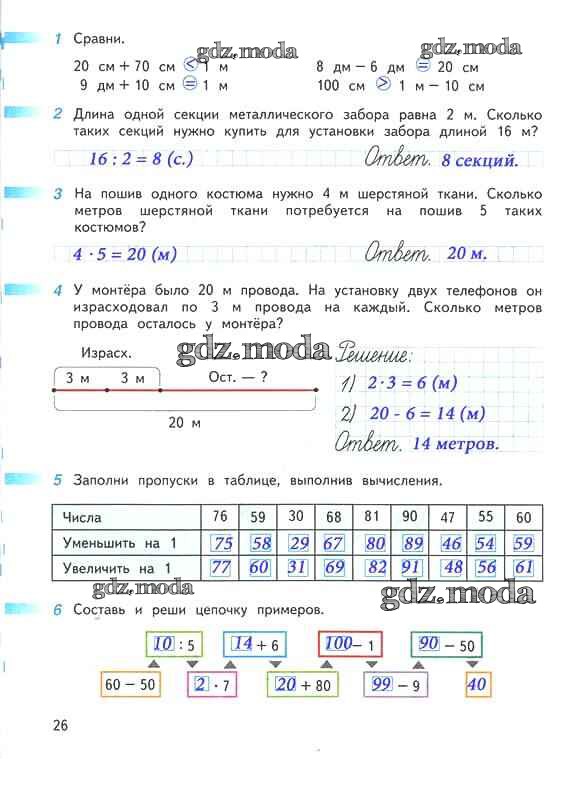 1 Сравни.
gdz.moda gdz.moda
20 см + 70 см < 1 м 8 дм − 6 дм = 20 см
9 дм + 10 см = 1 м 100 см > 1 м − 10 см
2 Длина одной секции металлического забора равна 2 м. Сколько
таких секций нужно купить для установки забора длиной 16 м?
16 : 2 = 8 (с.) Ответ. 8 секций.
3 На пошив одного костюма нужно 4 м шерстяной ткани. Сколько
метров шерстяной ткани потребуется на пошив 5 таких
костюмов?
4 · 5 = 20 (м) Ответ. 20 м.
4 У монтёра было 20 м провода. На установку двух телефонов он
израсходовал по 3 м провода на каждый. Сколько метров
провода осталось у монтёра?
Израсх. gdz.moda Решение:
3 м 3 м Ост. — ? 1) 2 · 3 = 6 (м)
20 м 2) 20 - 6 = 14 (м)
Ответ. 14 метров.
5 Заполни пропуски в таблице, выполнив вычисления.
Числа 76 59 30 68 81 90 47 55 60
Уменьшить на 1 75 58 29 67 80 89 46 54 59
Увеличить на 1 77 60 31 69 82 91 48 56 61
gdz.moda gdz.moda
6 Составь и реши цепочку примеров.
10 : 5 14 + 6 100 − 1 90 − 50
60 − 50 2 · 7 20 + 80 99 − 9 40
26